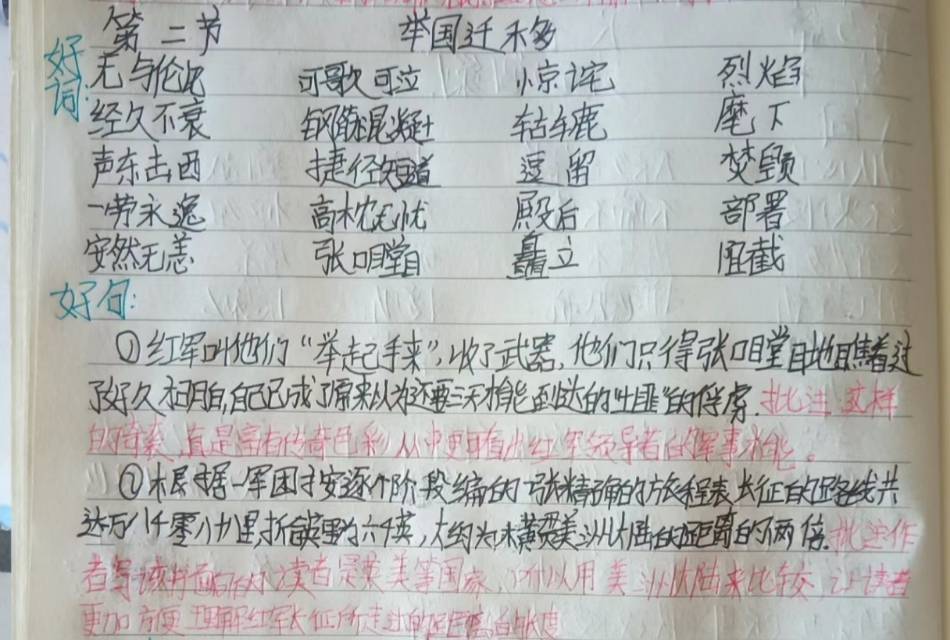 第二节 举国迁移
好词: 无与伦比 可歌可泣 惊诧 烈焰
经久不衰 钢筋混凝土 轱辘 麾下
声东击西 捷径知道 逗留 焚毁
一劳永逸 高枕无忧 殿后 部署
安然无恙 张口瞠目 矗立 阻截
好句:
①红军叫他们“举起手来”,收了武器,他们只得张口瞠目地瞧着过
了好久才明白,自己已成了原来以为还要三天才能到达的“土匪”的俘虏.批注:这样
的 直是富有传奇色彩 从中更看出红军领导者的军事才能。
②根据一军团按逐个阶段编的一张精确的旅程表长征的路线共
达万八千零八十八里折合英里为六千英,大约为横贯美洲大陆的距离的两倍.批注:作
者写 读者是英美等国家,所以用美洲大陆来比较,让读者
更加方便理解红军长征所走过的距离的长度